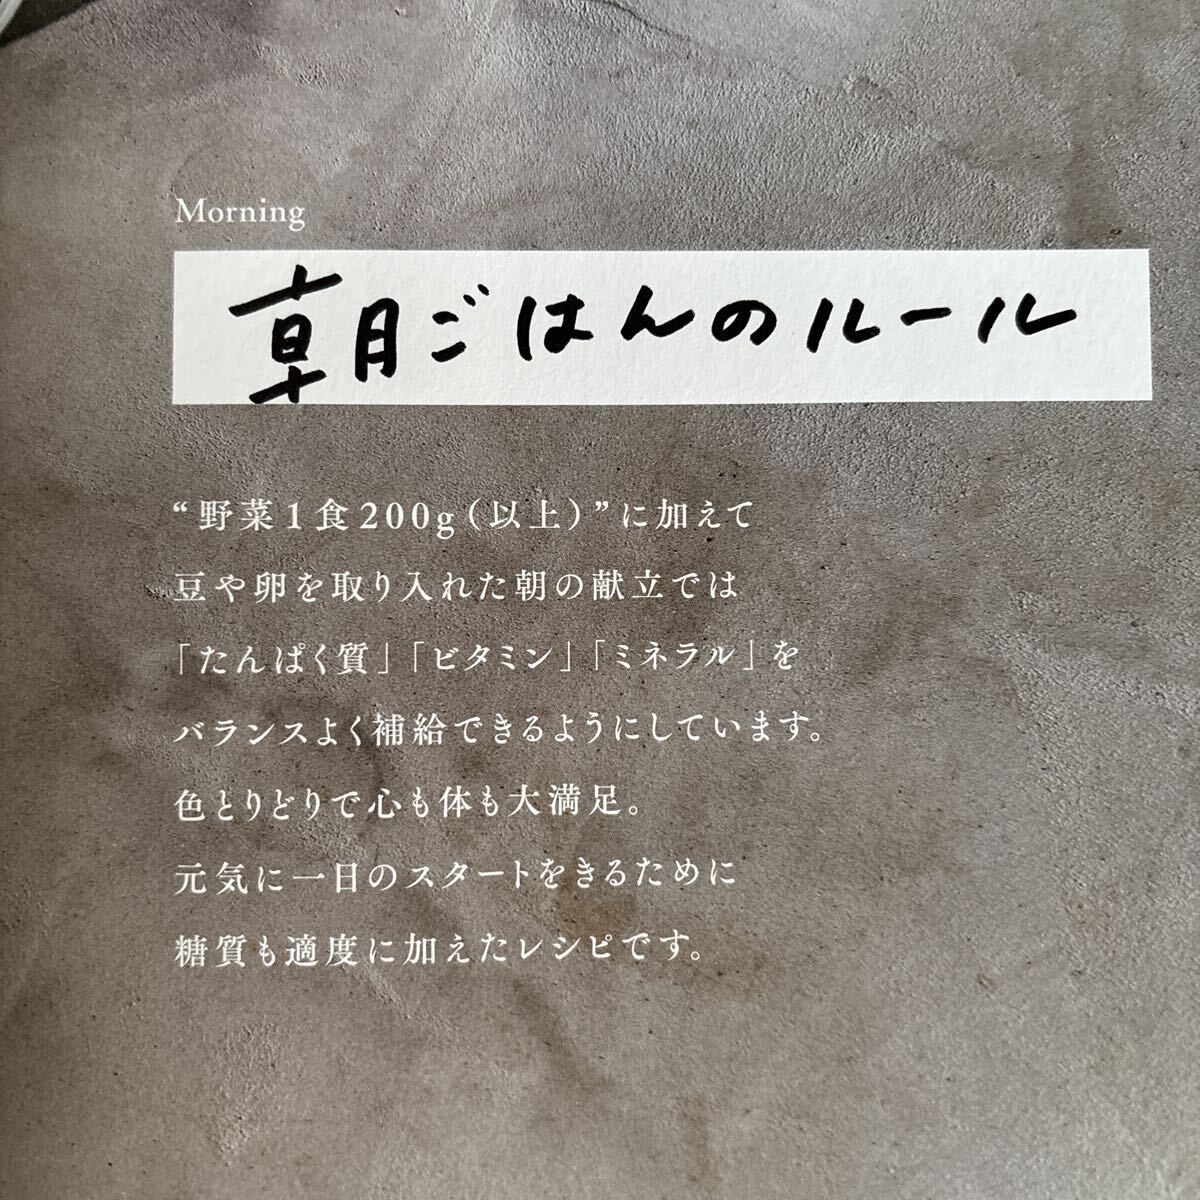 Morning
朝ごはんのルール
“野菜1食200g（以上）”に加えて
豆や卵を取り入れた朝の献立では
「たんぱく質」「ビタミン」「ミネラル」を
バランスよく補給できるようにしています。
色とりどりで心も体も大満足。
元気に一日のスタートをきるために
糖質も適度に加えたレシピです。